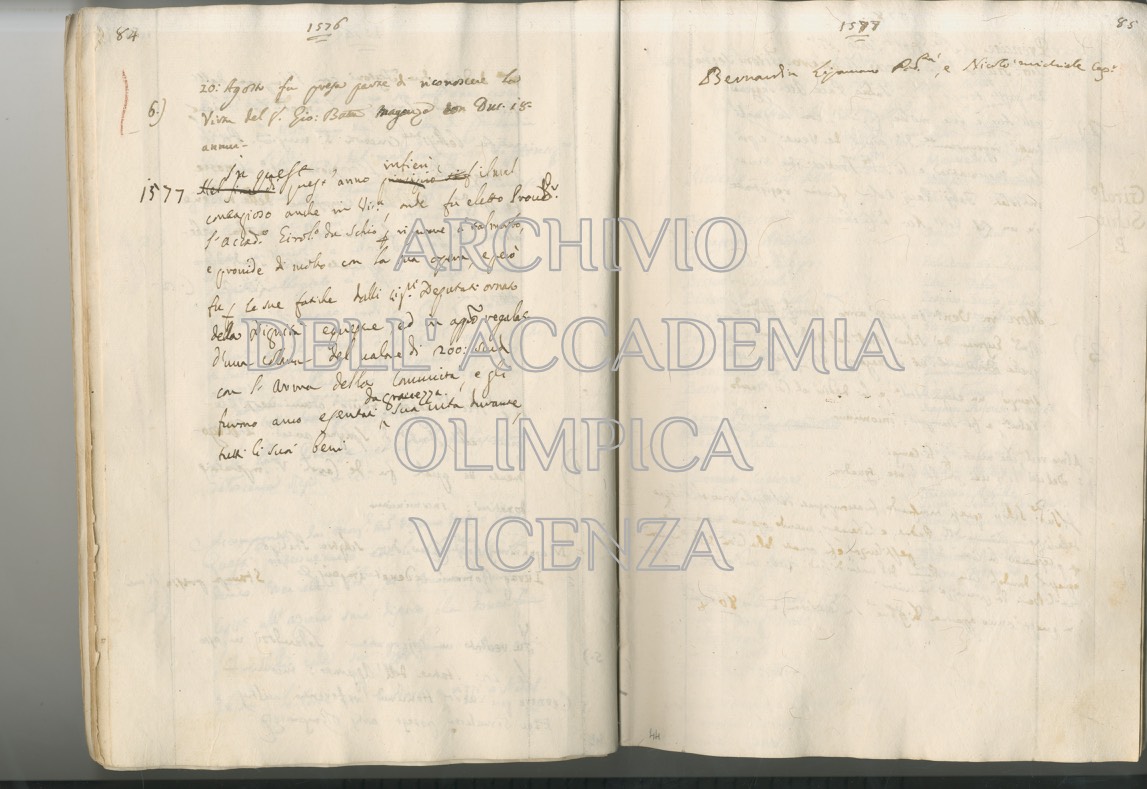 84
1576
6.)
20: Agosto fu presa parte di riconoscere la
Virtù del S. Gio: Batta Maganza con Duc. 15
annui-
1577 In quest' anno infierì il mal
contagioso anche in Vic.ª, onde fù eletto Proved.r
l'Accad.º Girol.º da Schio
e providde di molto con la sua opera, e però
fu le sue fatiche dalli Sig.ri Deputati ornato
della dignità equestre ed in appº regalat
d'una collana del valore di 200: scudi
con l'arma della Comunità, e gli
furono anco esentati da gravezza sua vita durante
tutti li suoi beni
1577
85
Bernardin Lipomano Pod.tà, e Nicolò michiele Cap:
44
ARCHIVIO
DELL'ACCADEMIA
OLIMPICA
VICENZA